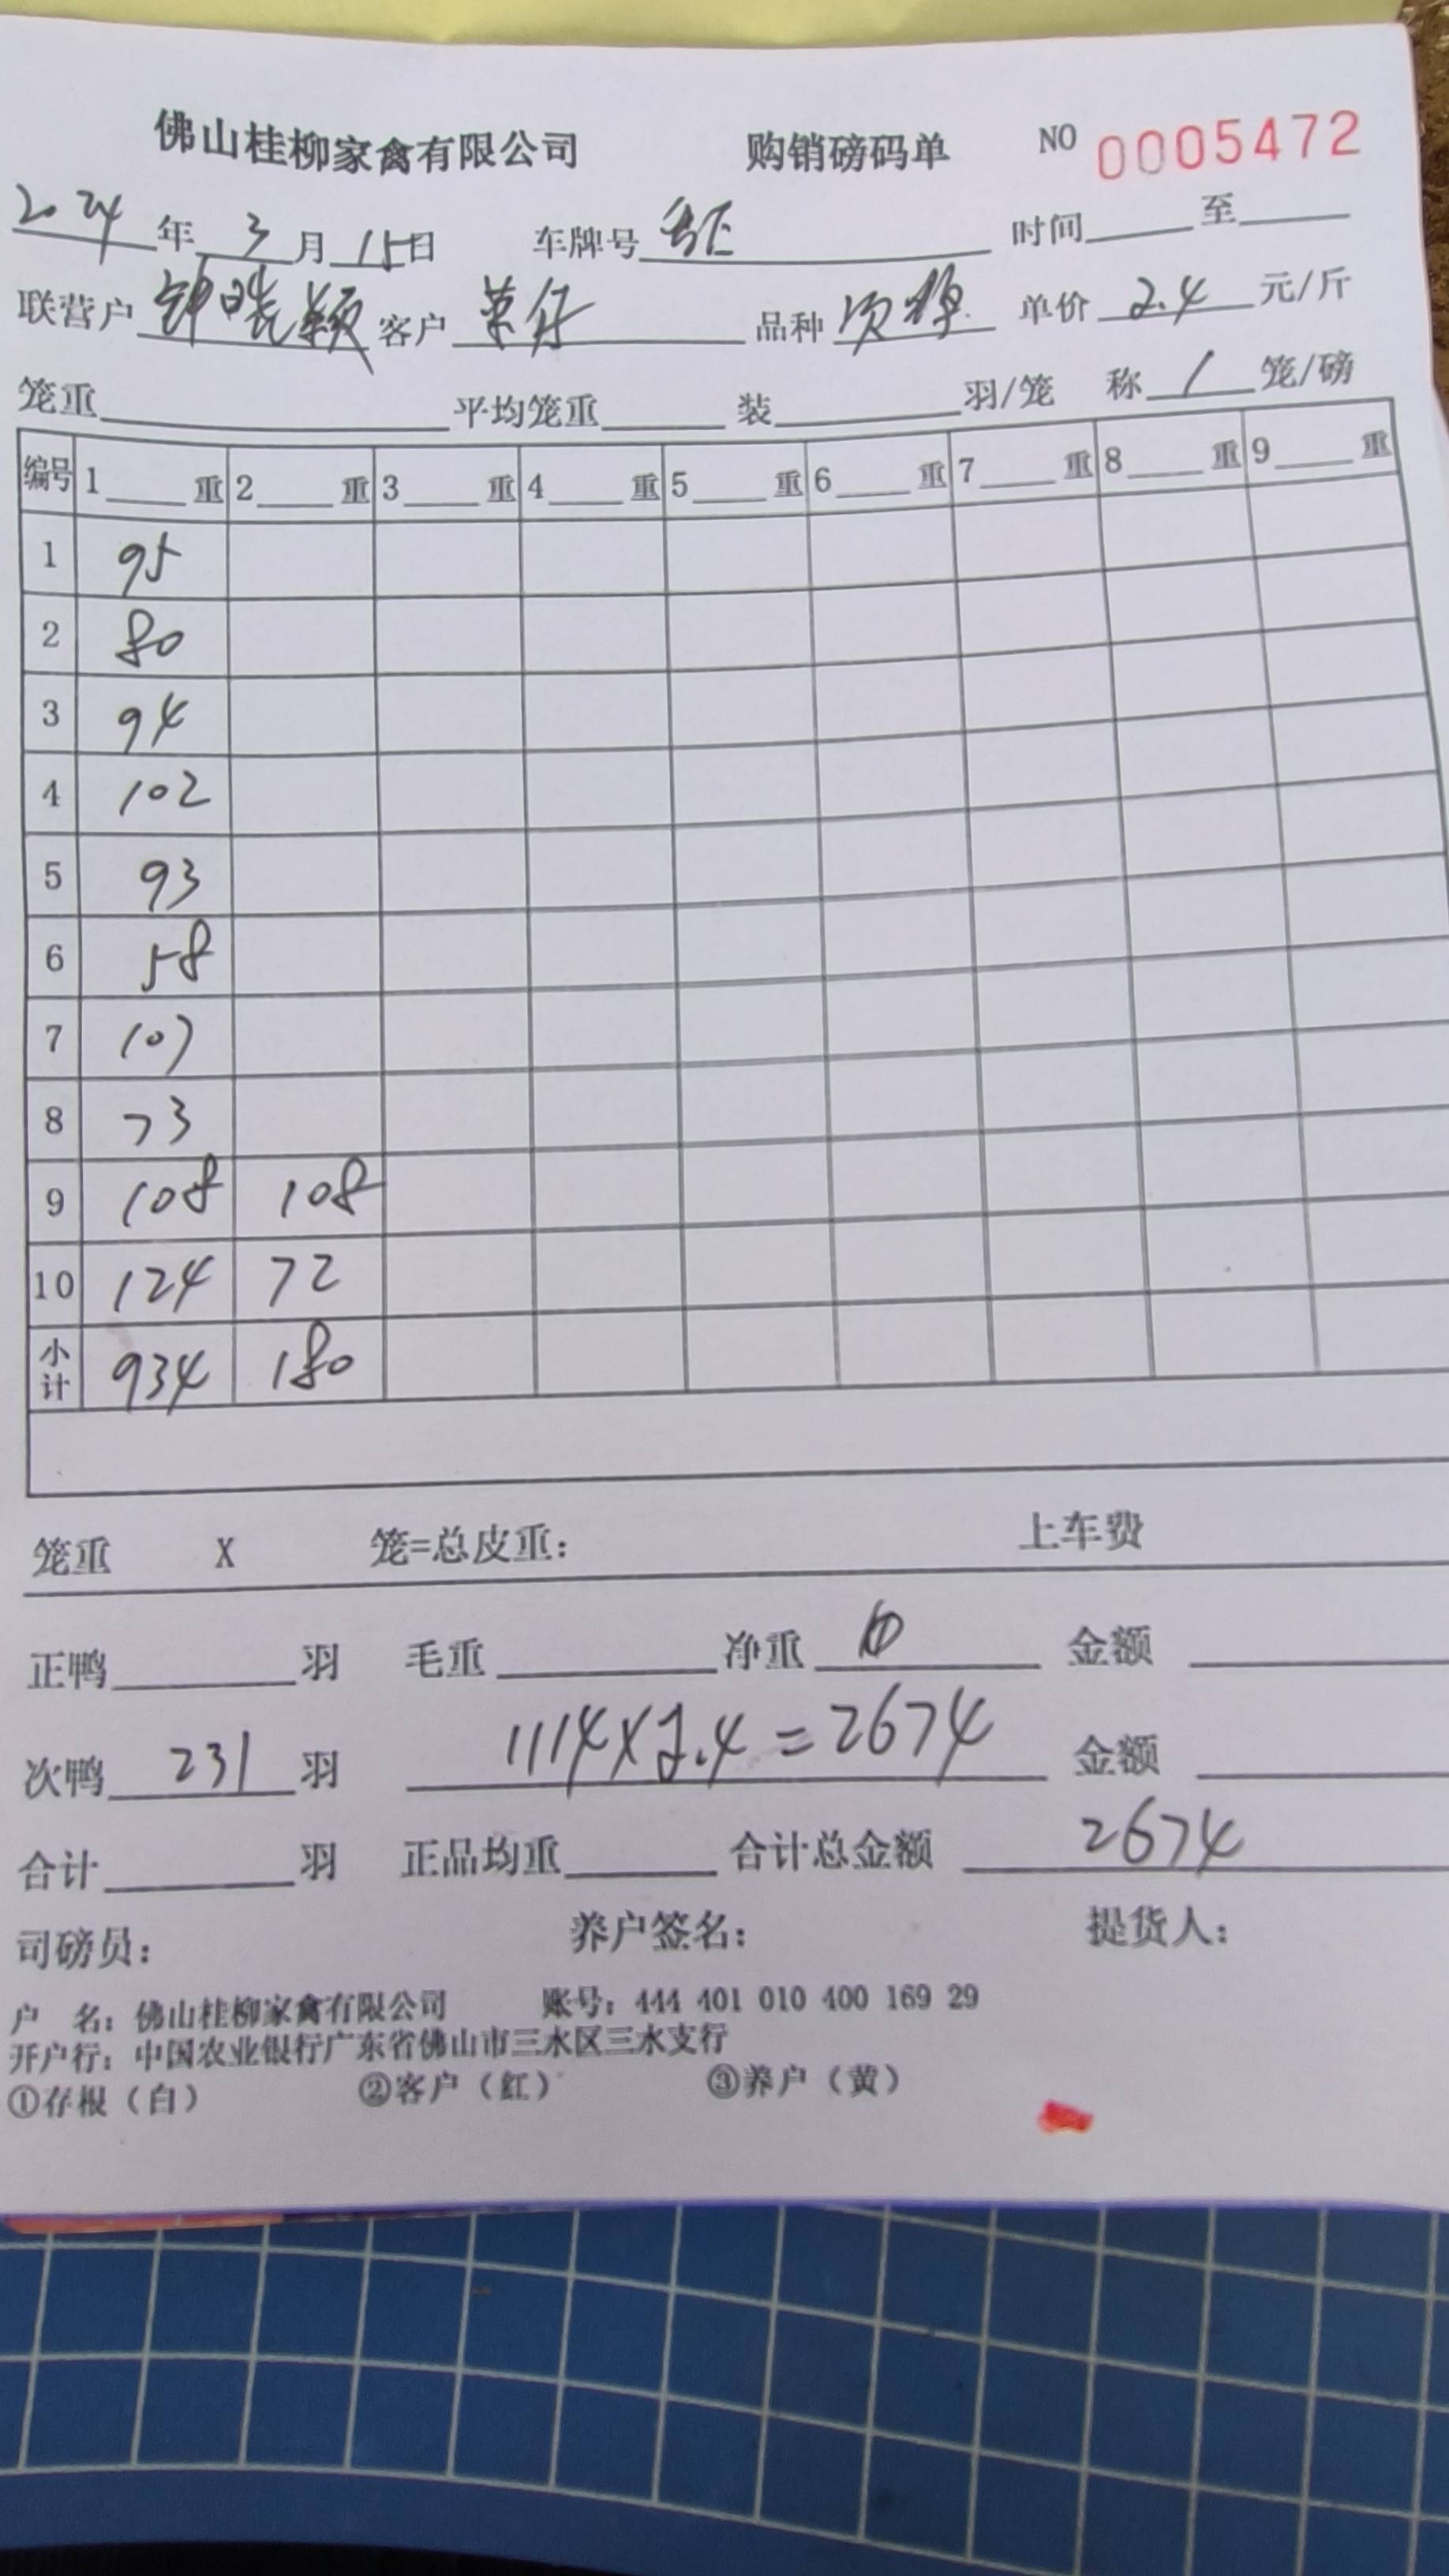 佛山桂柳家禽有限公司 购销磅码单 NO 0005472
2024年3月15日 车牌号 时间 至
联营户 钟晓颖 客户 英仔 品种 次鸭 单价 2.4 元/斤
笼重 平均笼重 装 羽/笼 称 1 笼/磅
编号 1 重 2 重 3 重 4 重 5 重 6 重 7 重 8 重 9 重
1 95
2 80
3 94
4 102
5 93
6 58
7 107
8 73
9 108 108
10 124 72
小计 934 180
笼重 X 笼=总皮重: 上车费
正鸭 羽 毛重 净重 金额
次鸭 231 羽 1114X2.4=2674 金额
合计 羽 正品均重 合计总金额 2674
司磅员: 养户签名: 提货人:
户 名: 佛山桂柳家禽有限公司 账号: 444 401 010 400 169 29
开户行: 中国农业银行广东省佛山市三水区三水支行
①存根(白) ②客户(红) ③养户(黄)